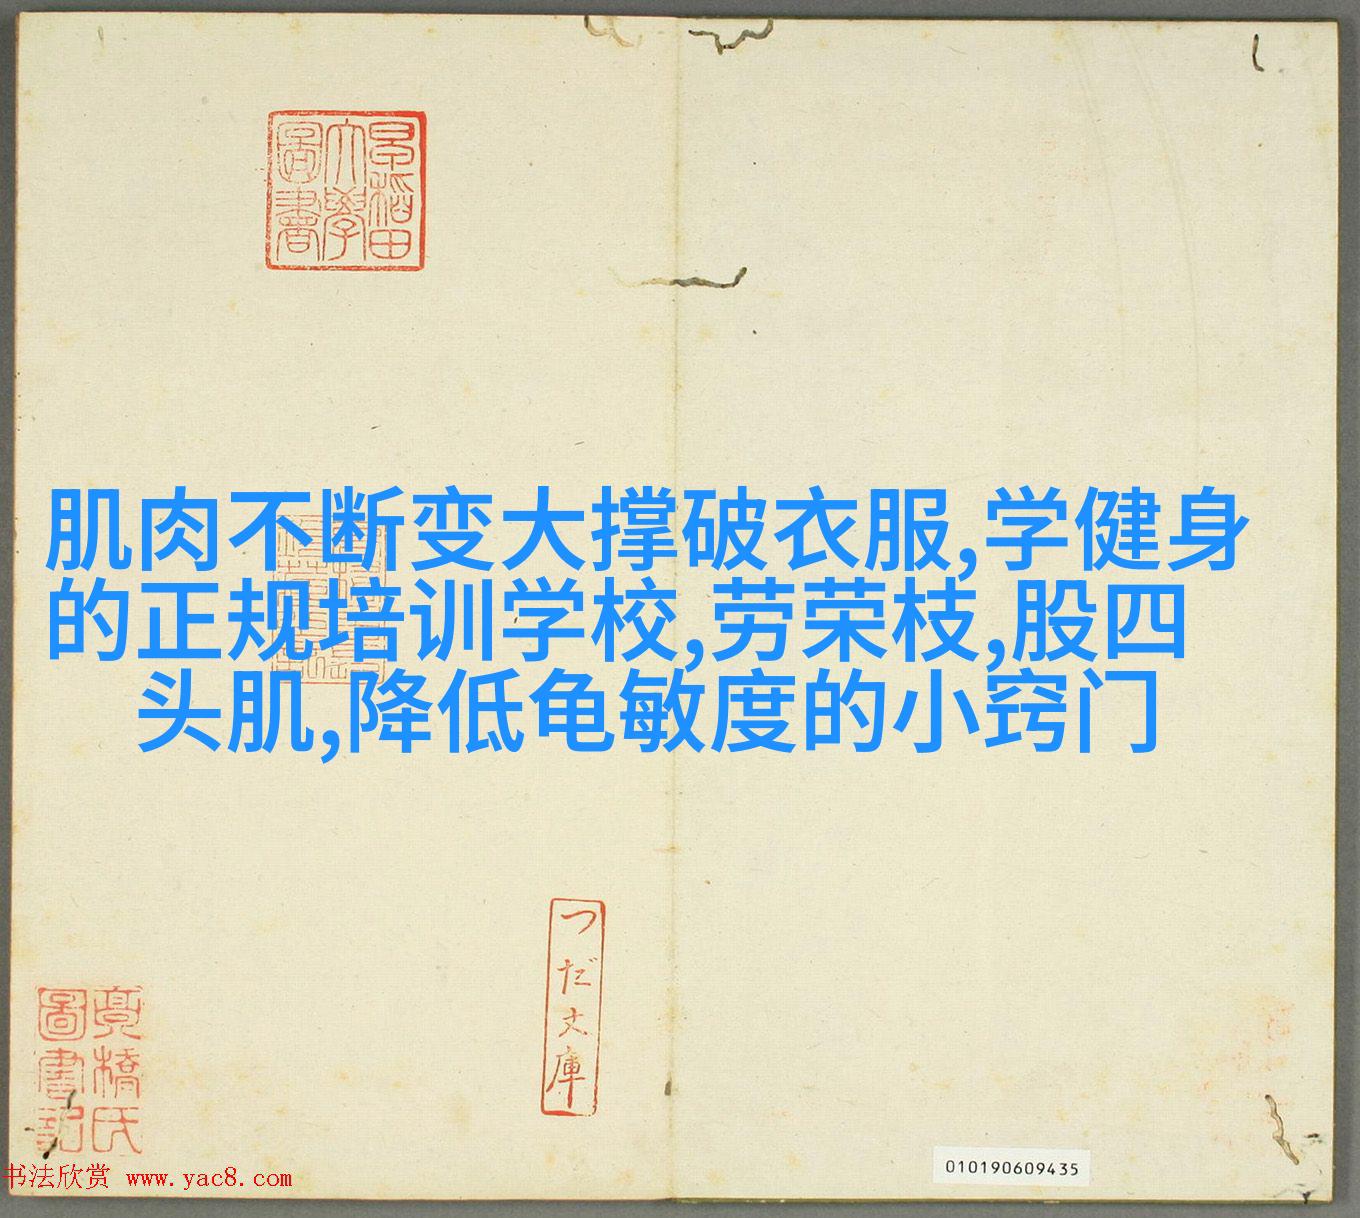 早稲田
大學
圖書
肌肉不断变大撑破衣服,学健身
的正规培训学校,劳荣枝,股四
头肌,降低龟敏度的小窍门
つだ文庫
圖書記
書法欣赏 www.yac8.com
010190609435